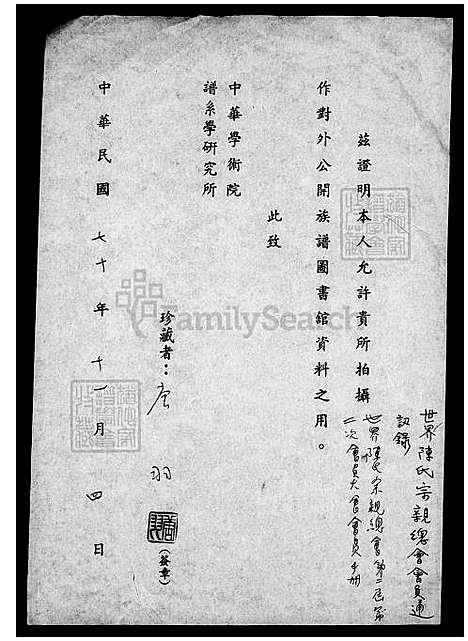 世界陳氏宗親總會會員通
訊錄
世界陳氏宗親總會第二屆第
二次會員大會會員手冊
茲證明本人允許貴所拍攝
作對外公開族譜圖書館資料之用。
此致
中華學術院
譜系學研究所
珍藏者：唐 羽
(簽章)
中華民國 七十 年 十一 月 四 日
FamilySearch